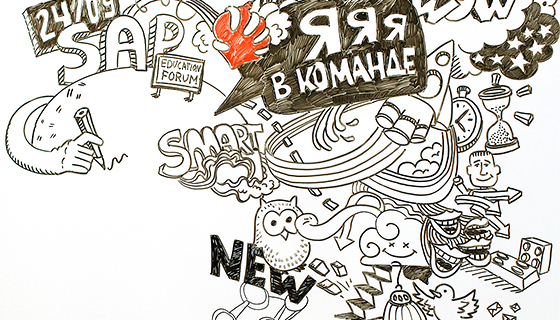 24/09
SAP
EDUCATION
FORUM
ЯЯЯ
В КОМАНДЕ
WOW
SMART
NEW